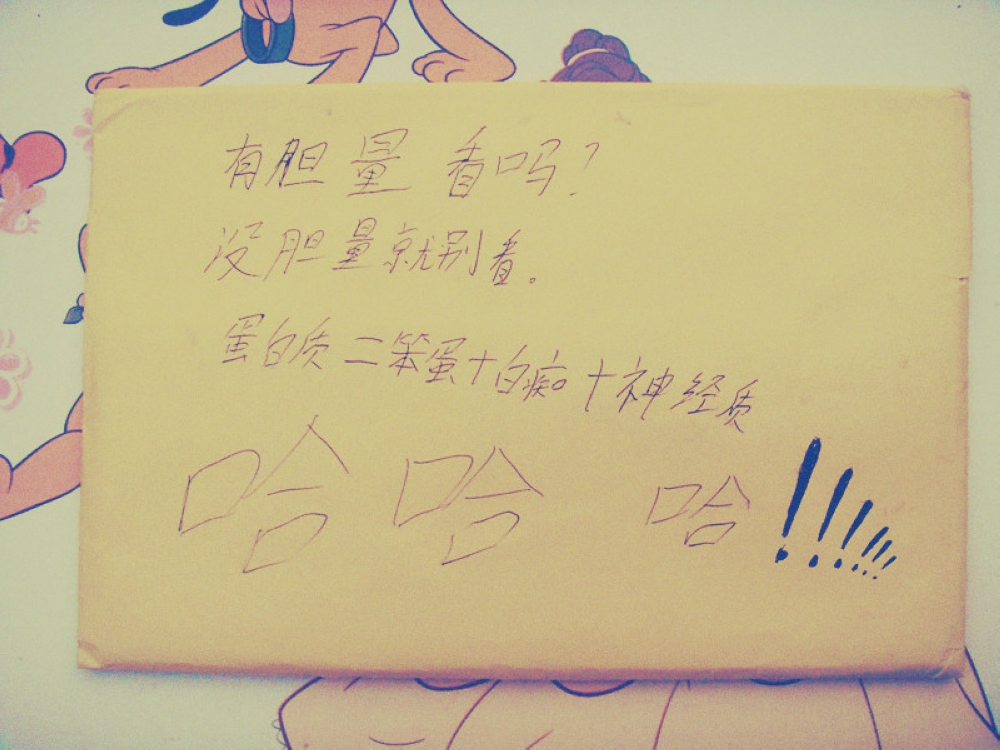 有胆量看吗?
没胆量就别看。
蛋白质=笨蛋+白痴+神经质
哈哈哈!!!!!!